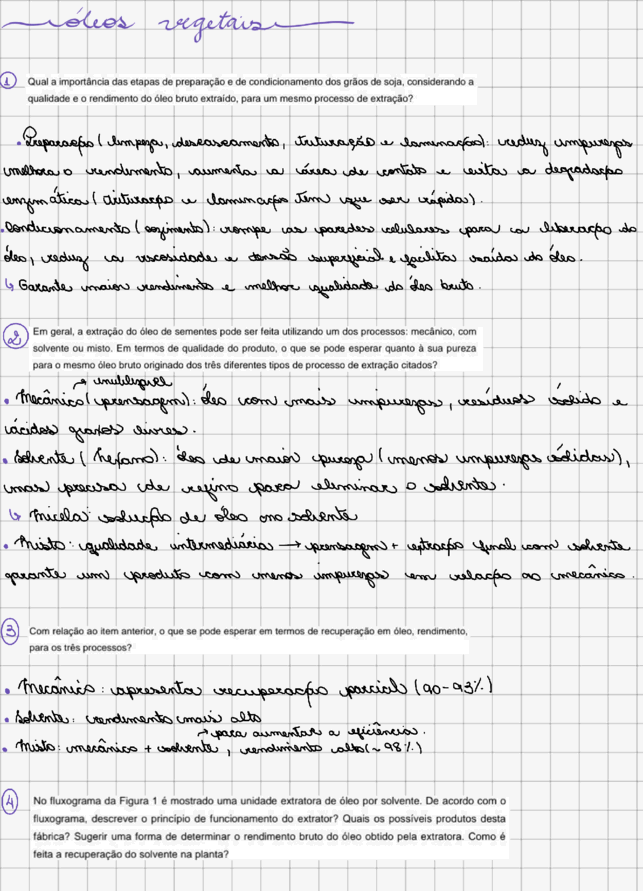 óleos vegetais
1 Qual a importância das etapas de preparação e de condicionamento dos grãos de soja, considerando a
qualidade e o rendimento do óleo bruto extraído, para um mesmo processo de extração?
• Preparação (limpeza, descascamento, trituração e laminação): reduz impurezas
melhora o rendimento, aumenta a área de contato e evita a degradação
enzimática (trituração e laminação tem que ser rápida).
• Condicionamento (cozimento): rompe as paredes celulares para a liberação do
óleo, reduz a viscosidade e tensão superficial e facilita saída do óleo.
↳ Garante maior rendimento e melhor qualidade do óleo bruto.
2 Em geral, a extração do óleo de sementes pode ser feita utilizando um dos processos: mecânico, com
solvente ou misto. Em termos de qualidade do produto, o que se pode esperar quanto à sua pureza
para o mesmo óleo bruto originado dos três diferentes tipos de processo de extração citados?
→
• Mecânico (prensagem): óleo com mais impurezas, resíduos sólido e
ácidos graxos livres.
• Solvente (hexano): óleo de maior pureza (menos impurezas sólidas),
mas precisa de refino para eliminar o solvente.
↳ Micela: solução de óleo no solvente
• Misto: qualidade intermediária → prensagem + extração final com solvente
garante um produto com menos impurezas em relação ao mecânico.
3 Com relação ao item anterior, o que se pode esperar em termos de recuperação em óleo, rendimento,
para os três processos?
• Mecânico: apresenta recuperação parcial (90-93%)
• Solvente: rendimento mais alto
→ para aumentar a eficiência.
• Misto: mecânico + solvente, rendimento alto (~98%)
4 No fluxograma da Figura 1 é mostrado uma unidade extratora de óleo por solvente. De acordo com o
fluxograma, descrever o princípio de funcionamento do extrator? Quais os possíveis produtos desta
fábrica? Sugerir uma forma de determinar o rendimento bruto do óleo obtido pela extratora. Como é
feita a recuperação do solvente na planta?